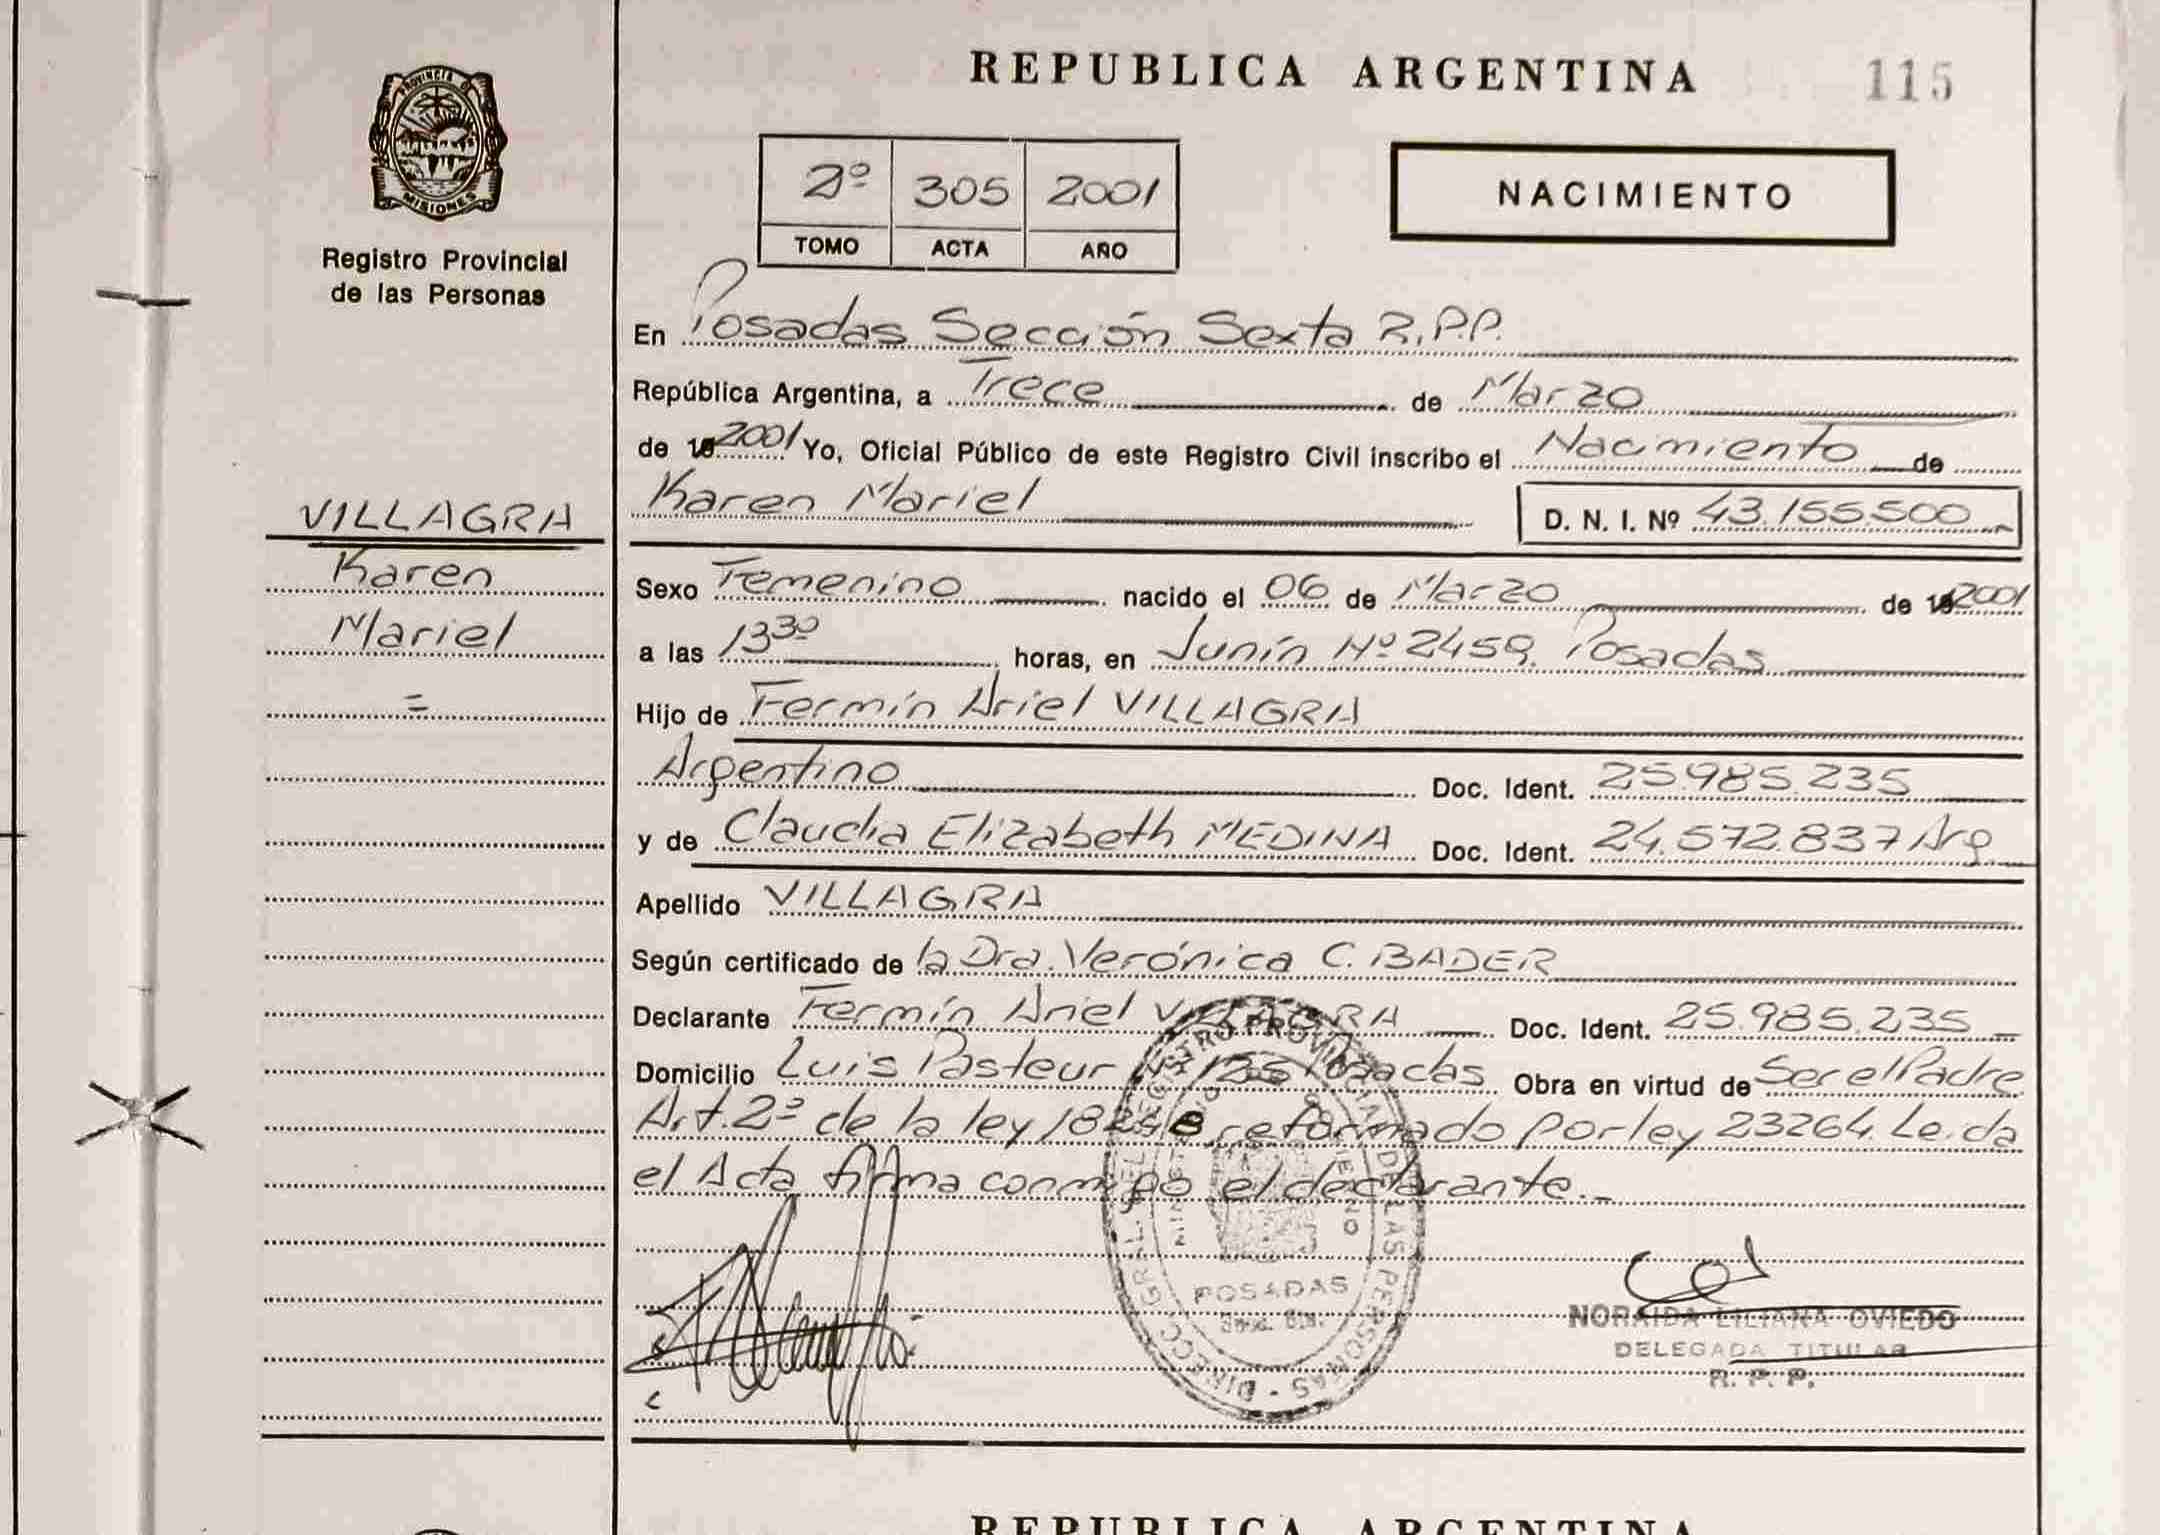 REPUBLICA ARGENTINA
115
PROVINCIA DE
MISIONES
Registro Provincial
de las Personas
2º 305 2001
TOMO ACTA AÑO
NACIMIENTO
En Posadas Sección Sexta R.P.P.
República Argentina, a Trece de Marzo
de 19 2001 Yo, Oficial Público de este Registro Civil inscribo el Nacimiento de
Karen Mariel D. N. I. Nº 43.155.500
VILLAGRA
Karen
Mariel
=
Sexo Femenino nacido el 06 de Marzo de 19 2001
a las 13 30 horas, en Junín Nº 2459. Posadas
Hijo de Fermín Ariel VILLAGRA
Argentino Doc. Ident. 25.985.235
y de Claudia Elizabeth MEDINA Doc. Ident. 24.572.837 Arg.
Apellido VILLAGRA
Según certificado de la Dra. Verónica C. BADER
Declarante Fermín Ariel VILLAGRA Doc. Ident. 25.985.235
Domicilio Luis Pasteur Posadas Obra en virtud de Ser el Padre
Art. 2º de la ley 18248 reformado por ley 23264. Leída
el Acta firma conmigo el declarante.
DIRECC. GRAL. DEL REGISTRO PROVINCIAL DE LAS PERSONAS
MINISTERIO GOBIERNO
POSADAS
NORAIDA LILIANA OVIEDO
DELEGADA TITULAR
R. P. P.
REPUBLICA ARGENTINA